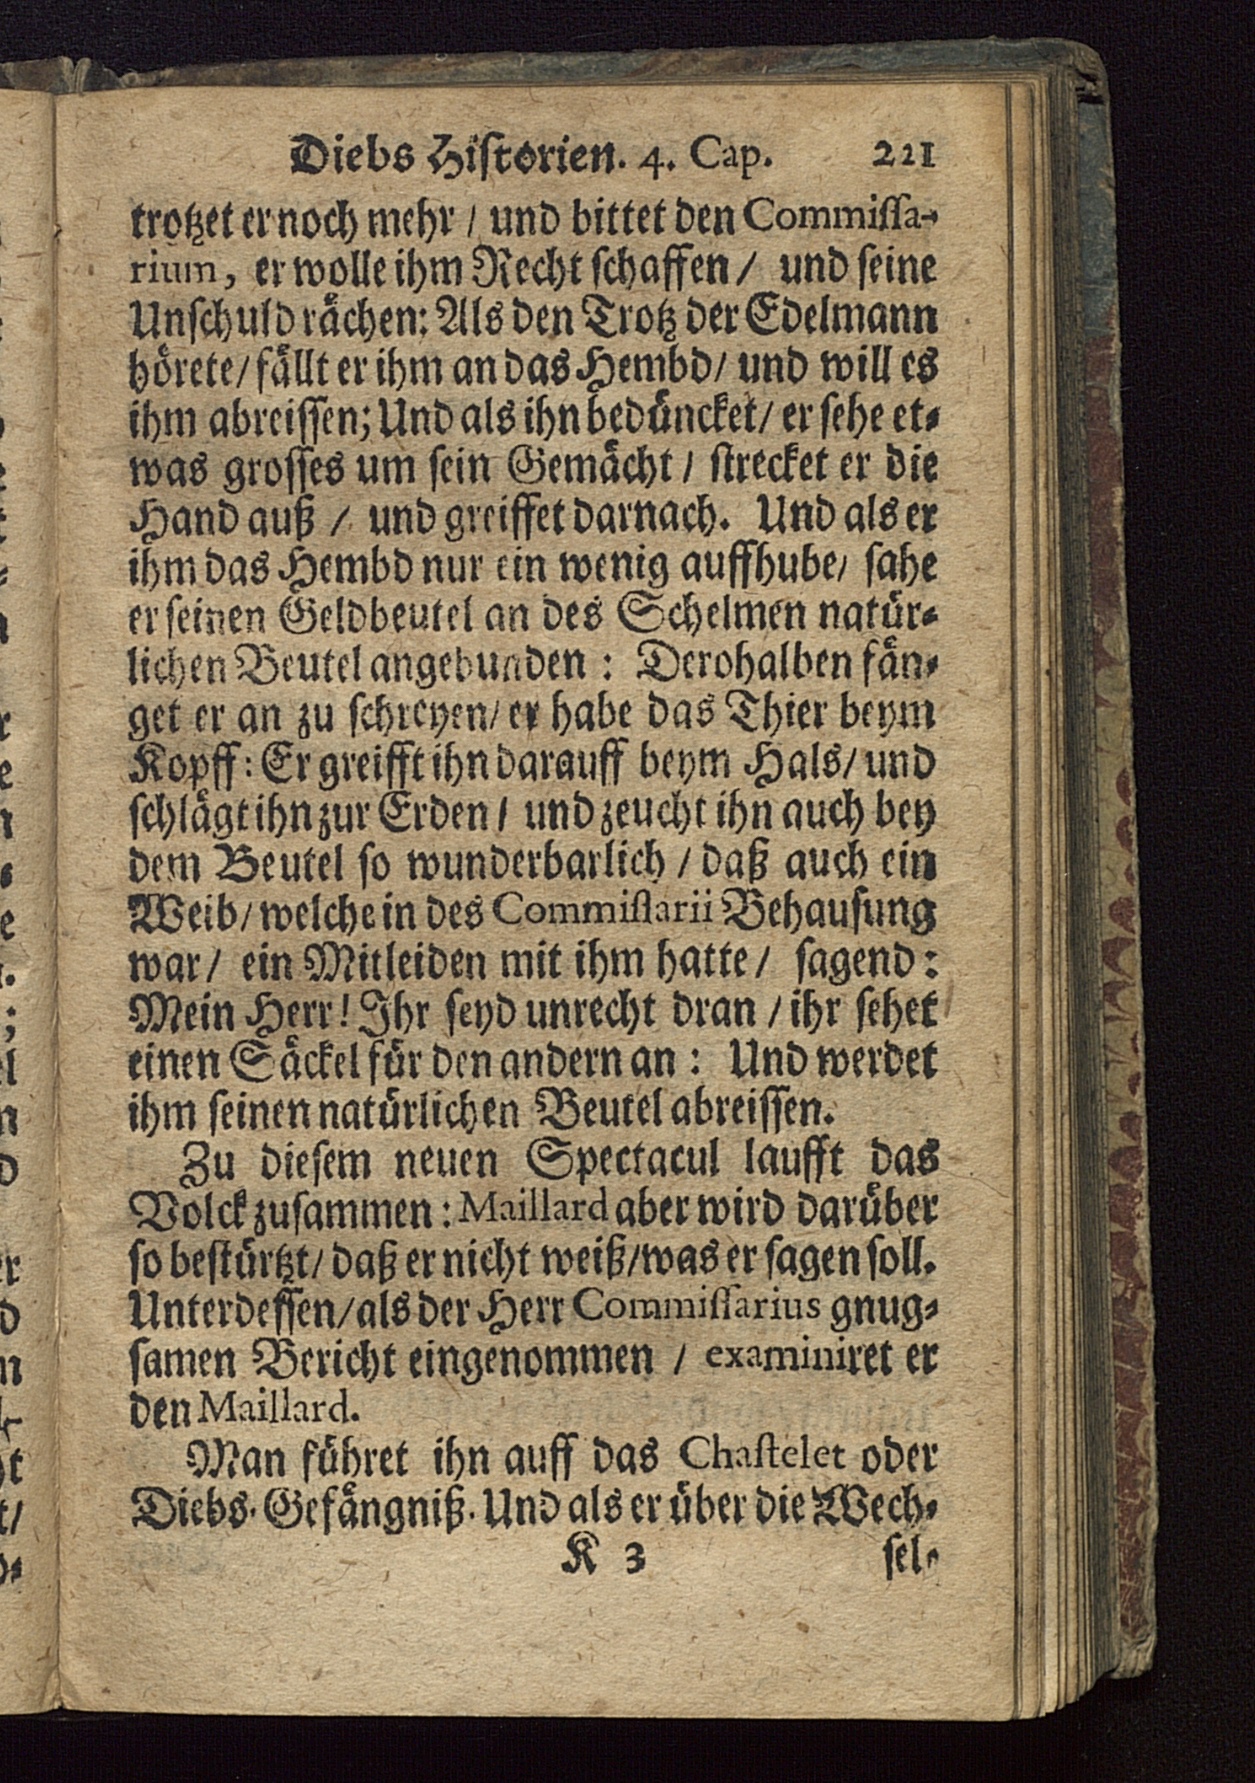 Diebs Historien. 4. Cap. 221
trotzet er noch mehr / und bittet den Commissa-
rium, er wolle ihm Recht schaffen / und seine
Unschuld rächen: Als den Trotz der Edelmann
hörete / fällt er ihm an das Hembd / und will es
ihm abreissen; Und als ihn bedüncket / er sehe et-
was grosses um sein Gemächt / strecket er die
Hand auß / und greiffet darnach. Und als er
ihm das Hembd nur ein wenig auffhube / sahe
er seinen Geldbeutel an des Schelmen natür-
lichen Beutel angebunden: Derohalben fän-
get er an zu schreyen / er habe das Thier beym
Kopff: Er greifft ihn darauff beym Hals / und
schlägt ihn zur Erden / und zeucht ihn auch bey
dem Beutel so wunderbarlich / daß auch ein
Weib / welche in des Commissarii Behausung
war / ein Mitleiden mit ihm hatte / sagend:
Mein Herr! Ihr seyd unrecht dran / ihr sehet
einen Säckel für den andern an: Und werdet
ihm seinen natürlichen Beutel abreissen.
Zu diesem neuen Spectacul laufft das
Volck zusammen: Maillard aber wird darüber
so bestürtzt / daß er nicht weiß / was er sagen soll.
Unterdessen / als der Herr Commissarius gnug-
samen Bericht eingenommen / examiniret er
den Maillard.
Man führet ihn auff das Chastelet oder
Diebs-Gefängniß. Und als er über die Wech-
K 3 sel-